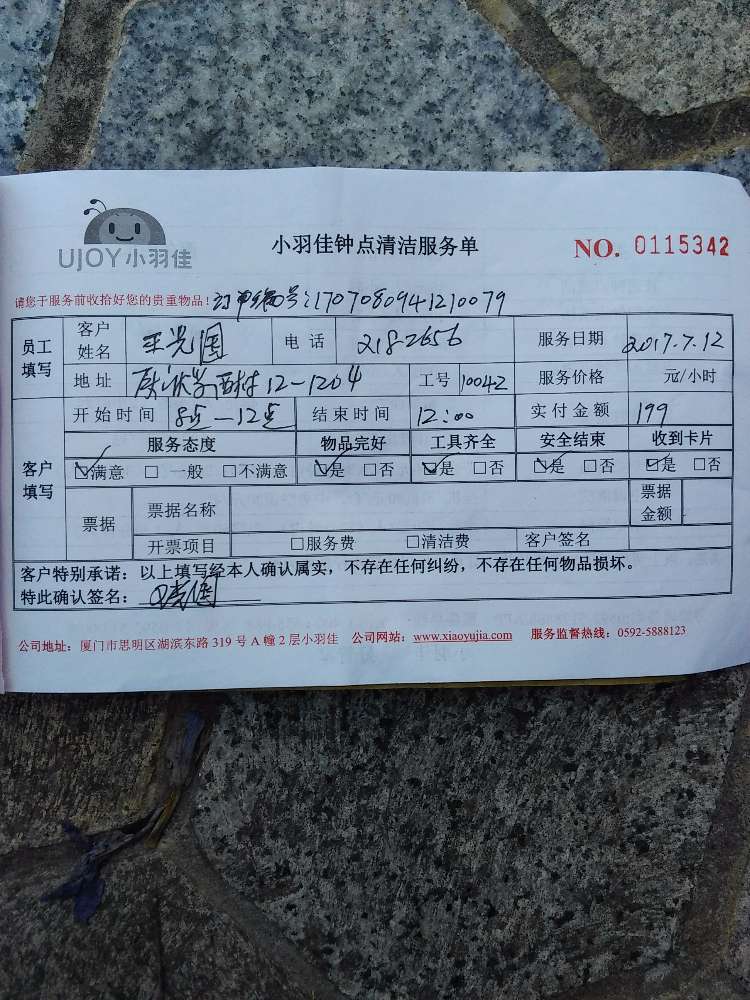 UJOY小羽佳
小羽佳钟点清洁服务单
NO. 0115342
请您于服务前收拾好您的贵重物品！订单编号:1707080941210079
员工填写 客户姓名 王光国 电话 2182656 服务日期 2017.7.12
地址 12-1204 工号 10042 服务价格 元/小时
开始时间 8点—12点 结束时间 12:00 实付金额 199
客户填写 服务态度 物品完好 工具齐全 安全结束 收到卡片
☑满意 □一般 □不满意 ☑是 □否 ☑是 □否 ☑是 □否 ☑是 □否
票据 票据名称 票据金额
开票项目 □服务费 □清洁费 客户签名
客户特别承诺：以上填写经本人确认属实，不存在任何纠纷，不存在任何物品损坏。
特此确认签名：
公司地址：厦门市思明区湖滨东路 319 号 A 幢 2 层小羽佳 公司网站：www.xiaoyujia.com 服务监督热线：0592-5888123